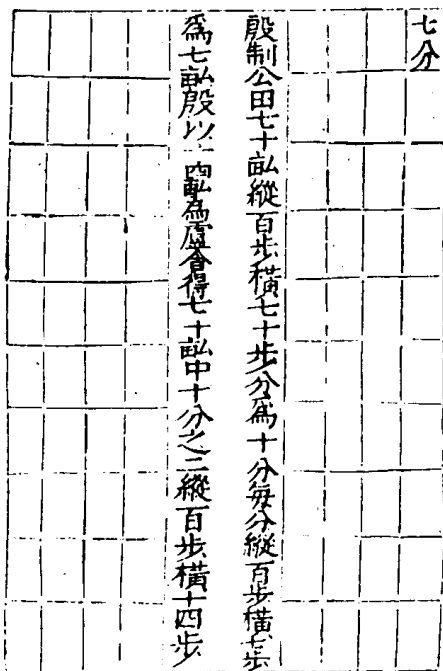 七分
殷制公田七十畝縱百步橫七十步分爲十分每分縱百步橫七步
爲七畝殷以十四畝為廬舍得七十畝中十分之二縱百步橫十四步